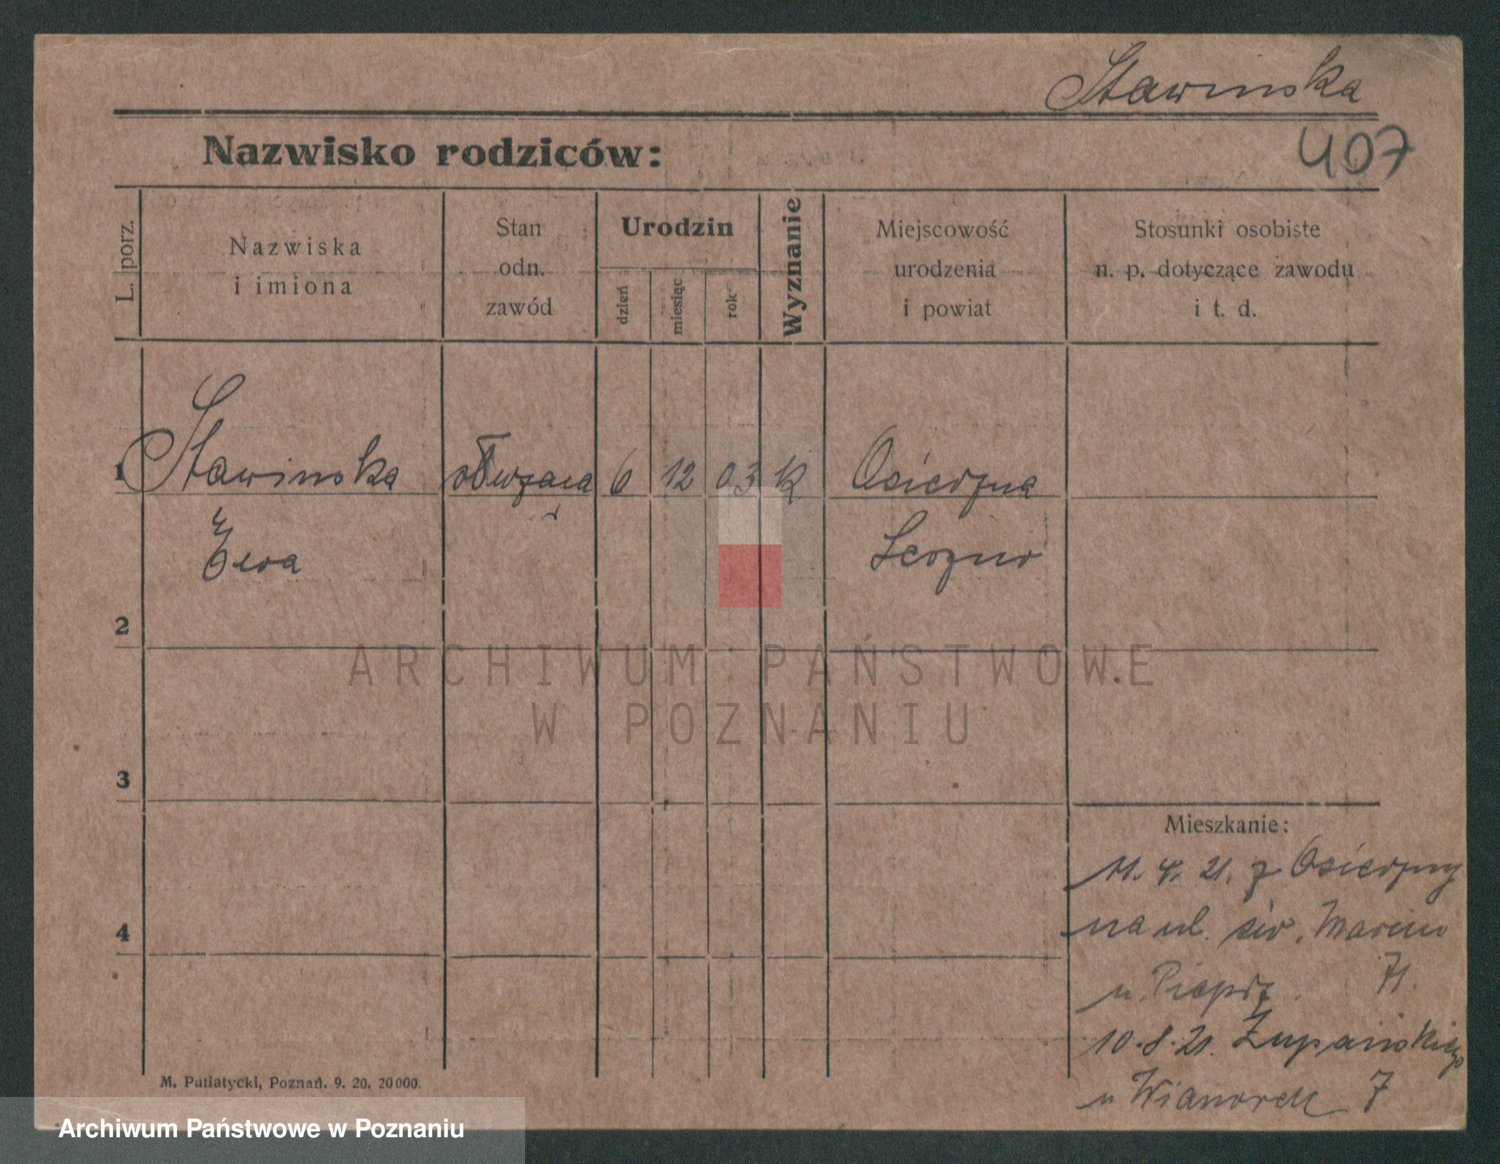 Stawinska
407
Nazwisko rodziców:
L. porz.
Nazwiska
i imiona
Stan
odn.
zawód
Urodzin
dzień
miesiąc
rok
Wyznanie
Miejscowość
urodzenia
i powiat
Stosunki osobiste
n. p. dotyczące zawodu
i t. d.
1
Stawinska
6
12
03
K
Osieczna
Ewa
Leszno
2
ARCHIWUM PAŃSTWOWE
W POZNANIU
3
Mieszkanie:
11. 4. 21. z Osieczny
na ul. św. Marcin
4
u 71.
10. 8. 21. Żupańskiego
u 7
M. Putiatycki, Poznań. 9. 20. 20000.
Archiwum Państwowe w Poznaniu